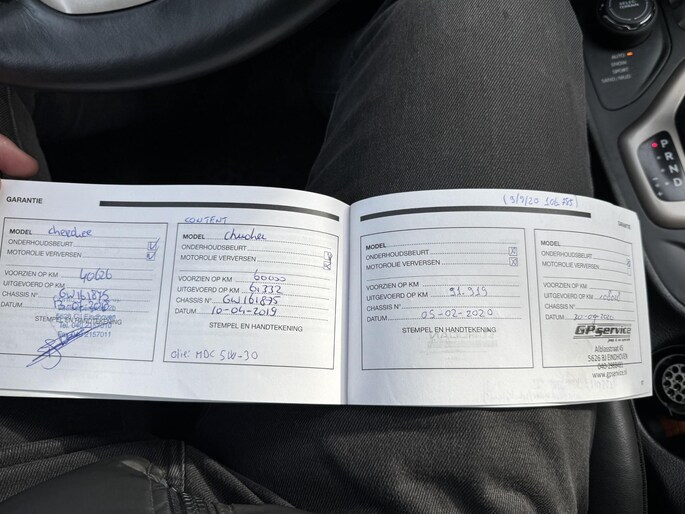 GARANTIE
MODEL cherokee
ONDERHOUDSBEURT
MOTOROLIE VERVERSEN
VOORZIEN OP KM 40626
UITGEVOERD OP KM
CHASSIS N° GW161895
DATUM
STEMPEL EN HANDTEKENING
CONTENT
MODEL cherokee
ONDERHOUDSBEURT
MOTOROLIE VERVERSEN
VOORZIEN OP KM 60000
UITGEVOERD OP KM 61332
CHASSIS N° GW161895
DATUM 10-04-2019
STEMPEL EN HANDTEKENING
Olie: MDC 5W-30
MODEL
ONDERHOUDSBEURT
MOTOROLIE VERVERSEN
VOORZIEN OP KM
UITGEVOERD OP KM 91.919
CHASSIS N°
DATUM 05-02-2020
STEMPEL EN HANDTEKENING
GARANTIE
MODEL
ONDERHOUDSBEURT
MOTOROLIE VERVERSEN
VOORZIEN OP KM
UITGEVOERD OP KM
CHASSIS N°
DATUM
STEMPEL EN HANDTEKENING
GPservice
Alblasstraat 45
5626 BJ EINDHOVEN
www.gpservice.nl
AUTO
SNOW
SPORT
SAND / MUD
P
R
N
D